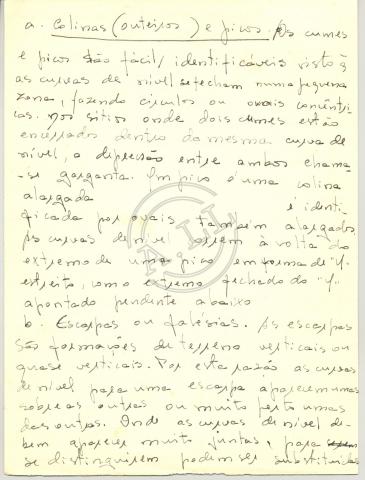 a. Colinas (outeiros) e picos. Os cumes
e picos são fácil/ identificáveis visto q
as curvas de nível se fecham numa pequena
zona, fazendo círculos ou ovais concêntri-
cas. Nos sítios onde dois cumes estão
encerrados dentro da mesma curva de
nível, a depressão entre ambos chama-
-se garganta. Um pico é uma colina
alargada é identi-
ficada por ovais também alargados
As curvas de nível correm à volta do
extremo de um pico em forma de "V"
estreito, com o extremo fechado do "V"
apontado pendente abaixo
b. Escarpas ou falésias. As escarpas
são formações de terreno verticais ou
quase verticais. Por esta razão as curvas
de nível para uma escarpa aparecem umas
sobre as outras ou muito perto umas
das outras. Onde as curvas de nível de-
bem aparecer muito juntas, para
se distinguirem podem ser substituídas